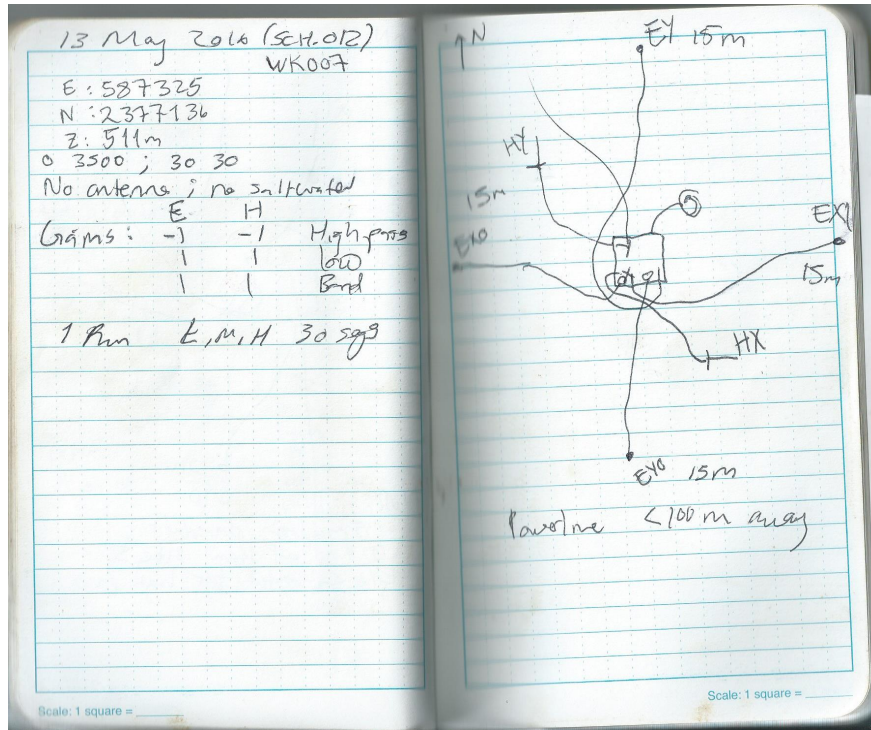 13 May 2016 (SCH.012)
WK007
E: 587325
N: 2377136
Z: 511m
0 3500 ; 30 30
No antenna ; no saltwater
E H
Gains: -1 -1 High pass
1 1 low
1 1 Band
1 Run L, M, H 30 segs
Scale: 1 square =
N
EY 15m
HY
15m
EX0
EX
15m
HX
EY0 15m
Powerline <100 m away
Scale: 1 square =